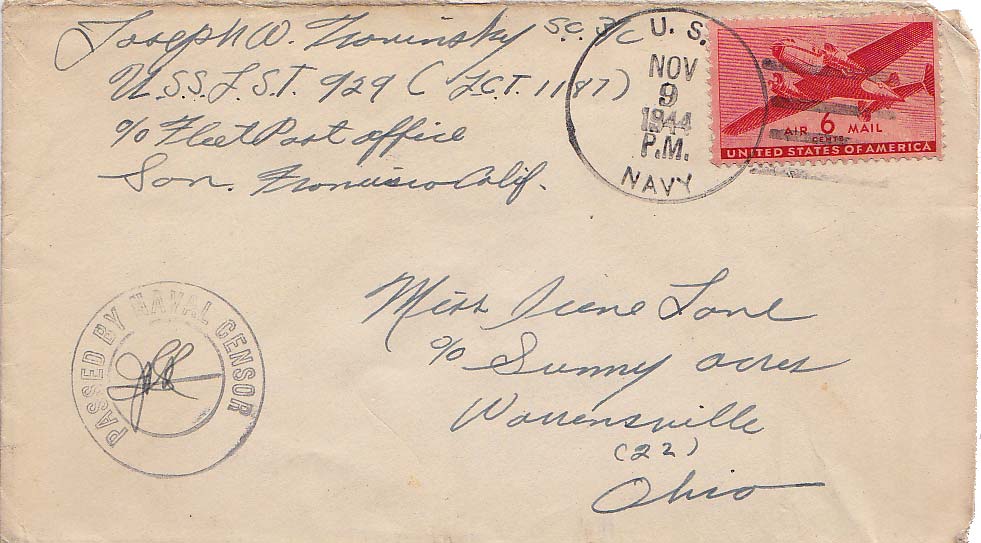 Joseph W. Zvovinsky S.C. 3/c
U.S.S. L.S.T. 929 (L.C.T. 1187)
c/o Fleet Post office
San. Francisco Calif.
U. S.
NOV
9
1944
P.M.
NAVY
AIR 6 MAIL
CENTS
UNITED STATES OF AMERICA
PASSED BY NAVAL CENSOR
Miss Irene Lane
c/o Sunny acres
Warrensville
(22)
Ohio